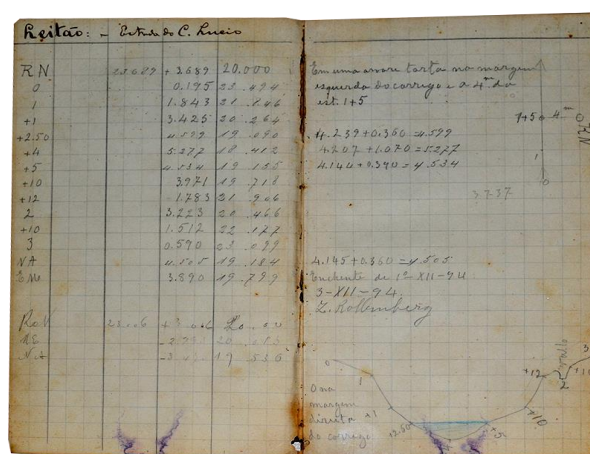 Leitão: - Estrada do C. Lucio
RN 23.689 + 3.689 20.000
0 0.195 23.494
1 1.843 21.846
+1 3.425 20.264
+2.50 4.599 19.090
+4 5.277 18.412
+5 4.534 19.155
+10 3.971 19.718
+12 1.783 21.906
2 3.223 20.466
+10 1.512 22.177
3 0.590 23.099
NA 4.505 19.184
EM 3.890 19.799
Em uma arvore torta na margem
esquerda do corrego e a 4m da
est. 1+5
4.239+0.360=4.599
4.207+1.070=5.277
4.144+0.390=4.534
4.145+0.360=4.505
Enchente de 1º-XII-94
3-XII-94
1+5 4
RN
1
0
3737
0 na
margem
direita
do corrego
0
1
+1
+2.50
+5
+10
+12
2
3
+10